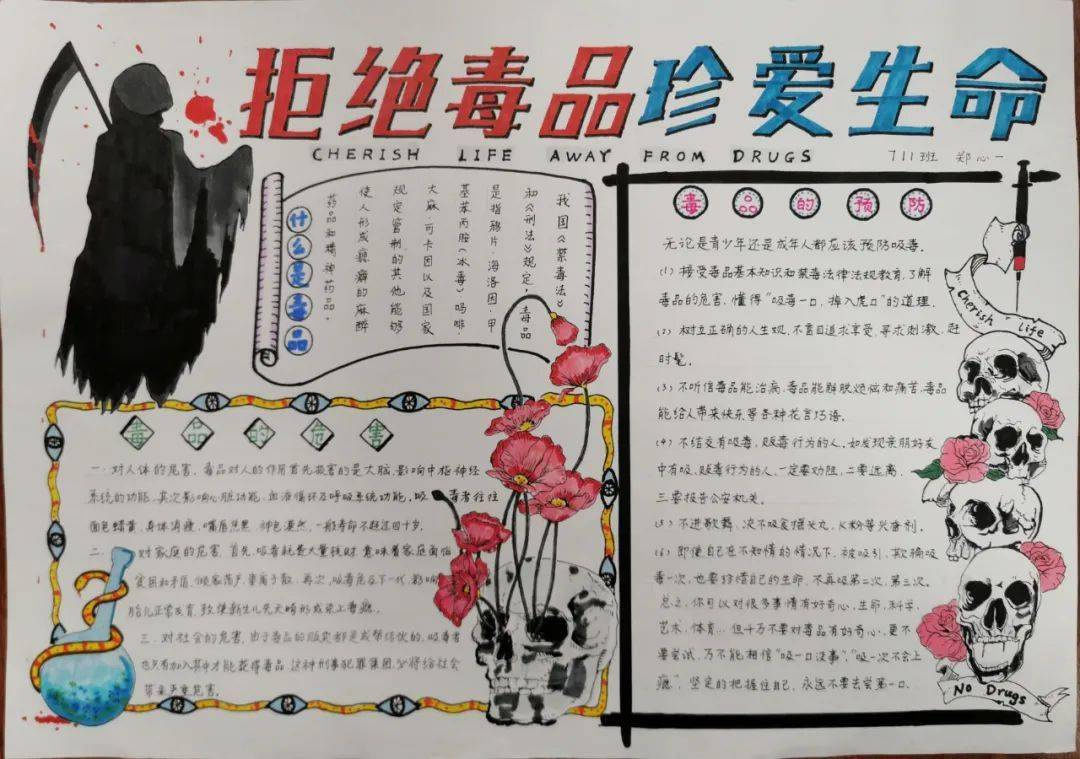 拒绝毒品 珍爱生命
CHERISH LIFE AWAY FROM DRUGS
711班 郑心一
什么是毒品
我国《禁毒法》
和《刑法》规定，毒品
是指鸦片·海洛因·甲
基苯丙胺《冰毒》吗啡·
大麻·可卡因以及国家
规定管制的其他能够
使人形成瘾癖的麻醉
药品和精神药品。
毒品的危害
一、对人体的危害，毒品对人的作用首先损害的是大脑，影响中枢神经
系统的功能，其次影响心脏功能，血液循环及呼吸系统功能，吸毒者往往
面色蜡黄，身体消瘦，嘴唇焦黑，神色漠然，一般寿命不超过四十岁。
二、对家庭的危害，首先，吸毒耗费大量钱财，意味着家庭面临
贫困和矛盾，倾家荡产，妻离子散，再次，吸毒危及下一代，影响
胎儿正常发育，致使新生儿先天畸形或染上毒瘾。
三、对社会的危害，由于毒品的贩卖都是成帮结伙的，吸毒者
也只有加入其中才能获得毒品，这种刑事犯罪集团，必将给社会
带来严重危害。
毒品的预防
无论是青少年还是成年人都应该预防吸毒。
(1) 接受毒品基本知识和禁毒法律法规教育，了解
毒品的危害，懂得“吸毒一口，掉入虎口”的道理。
(2) 树立正确的人生观，不盲目追求享受，寻求刺激，赶
时髦。
(3) 不听信毒品能治病，毒品能解脱烦恼和痛苦，毒品
能给人带来快乐等各种花言巧语。
(4) 不结交有吸毒，贩毒行为的人。如发现亲朋好友
中有吸、贩毒行为的人，一定要劝阻，二要远离，
三要报告公安机关。
(5) 不进歌舞，决不吸食摇头丸，K粉等兴奋剂。
(6) 即使自己在不知情的情况下，被吸引，欺骗吸
毒一次，也要珍惜自己的生命，不再吸第二次，第三次。
总之，你可以对很多事情有好奇心，生命，科学，
艺术，体育...但千万不要对毒品有好奇心，更不
要尝试，万不能相信“吸一口没事”，“吸一次不会上
瘾”，坚定的把握住自己，永远不要去尝第一口。
Cherish life
No Drugs